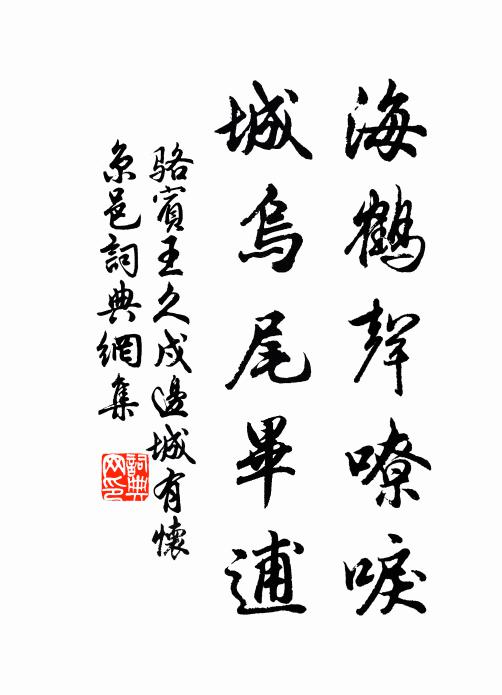 海鶴聲嘹唳
城烏尾畢逋
駱賓王久戍邊城有懷
京邑詞典網集
詞典
网印